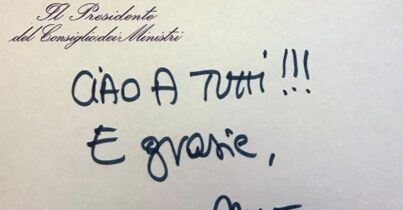 Il Presidente
del Consiglio dei Ministri
CIAO A TUTTI!!!
E grazie,